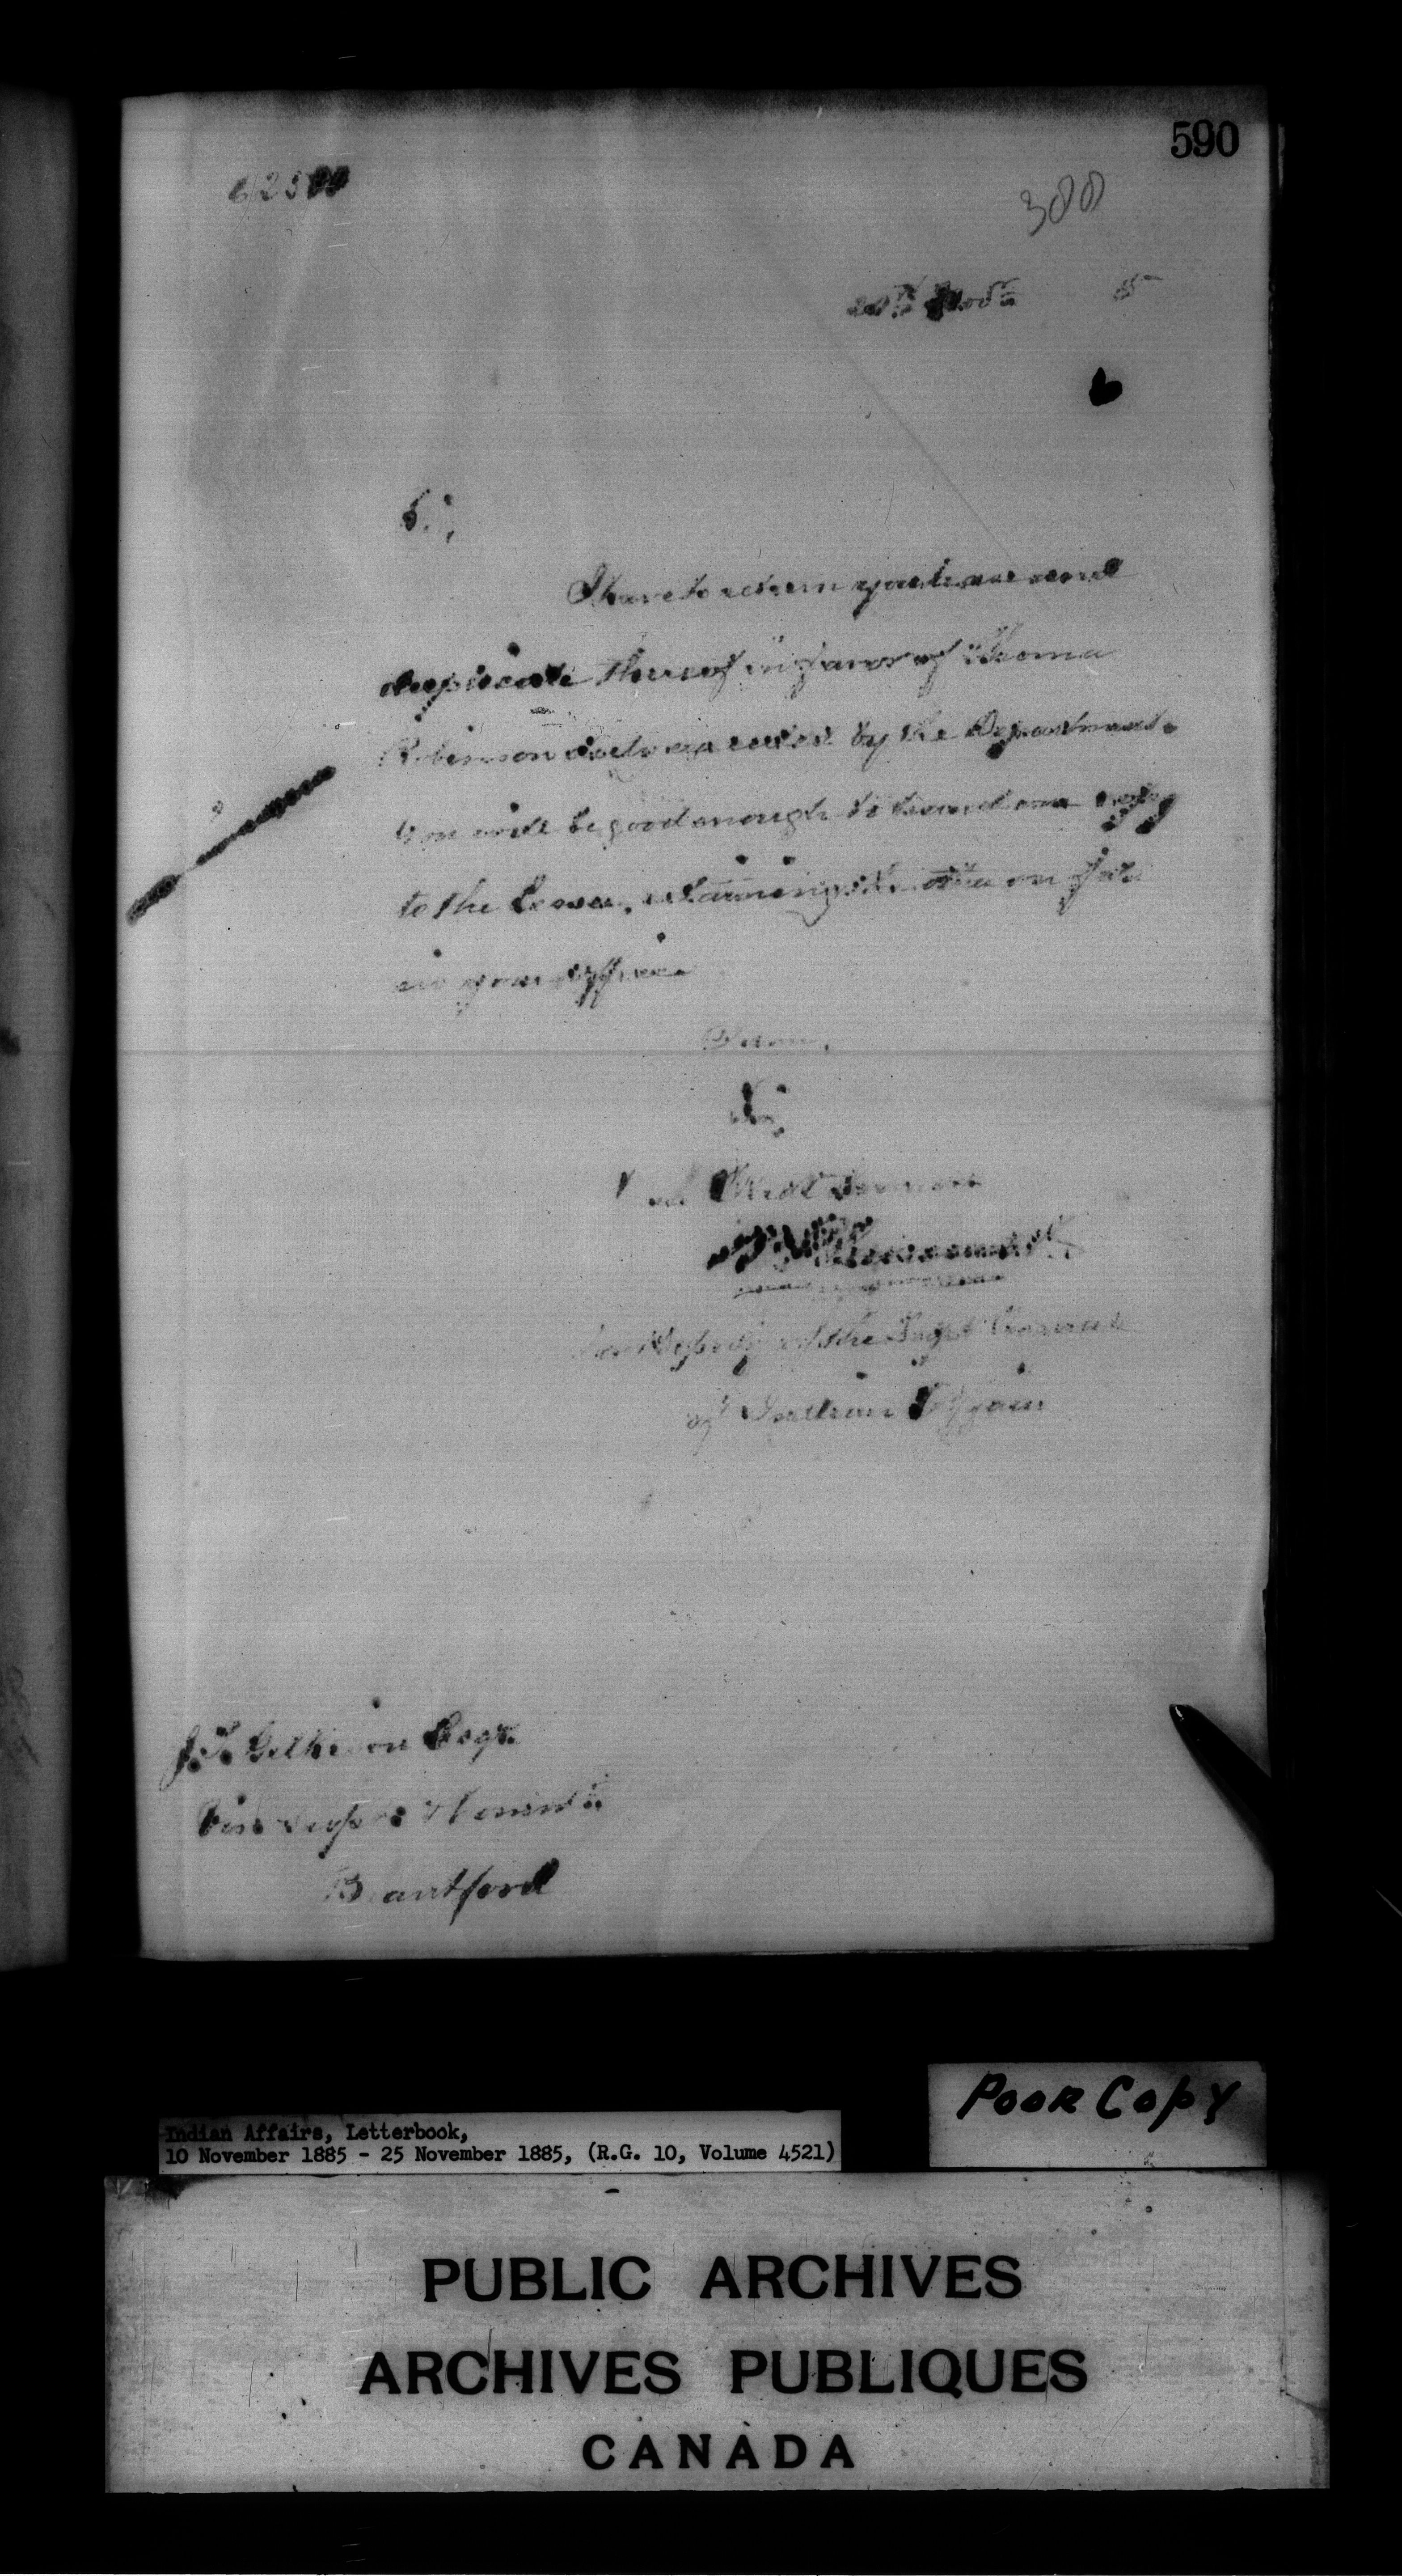 590
300
20th Novr 5
Sir,
I have to return you lease and
duplicate thereof in favor of Thomas
Robinson duly executed by the Department.
You will be good enough to hand one copy
to the Lessee, retaining the other on file
in your office.
I am,
Sir,
Your Obedt Servant
for Deputy of the Supt General
of Indian Affairs
J.T. Gilkison Esqr.
Brantford
POOR COPY
Indian Affairs, Letterbook,
10 November 1885 - 25 November 1885, (R.G. 10, Volume 4521)
PUBLIC ARCHIVES
ARCHIVES PUBLIQUES
CANADA